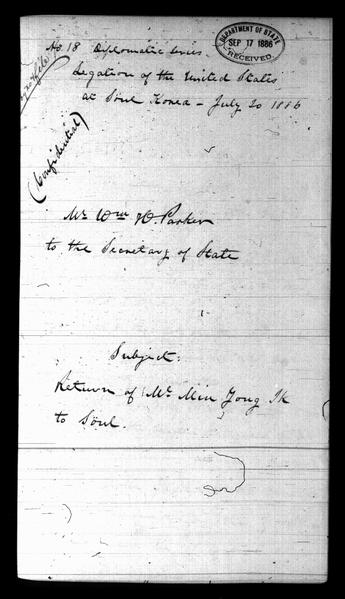 No. 18 Diplomatic Series.
DEPARTMENT OF STATE
SEP 17 1886
RECEIVED
Legation of the United States
at Söul Korea - July 20 1886
(Confidential)
Mr Wm H. Parker
to the Secretary of State
Subject:
Return of Mr Min Yong Ik
to Söul.